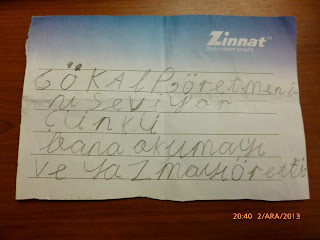 Zinnat™
GÖKALP öretmeni-
ni seviyor
çünkü
bana okumayı
ve yazmayı öretti
20:40 2/ARA/2013